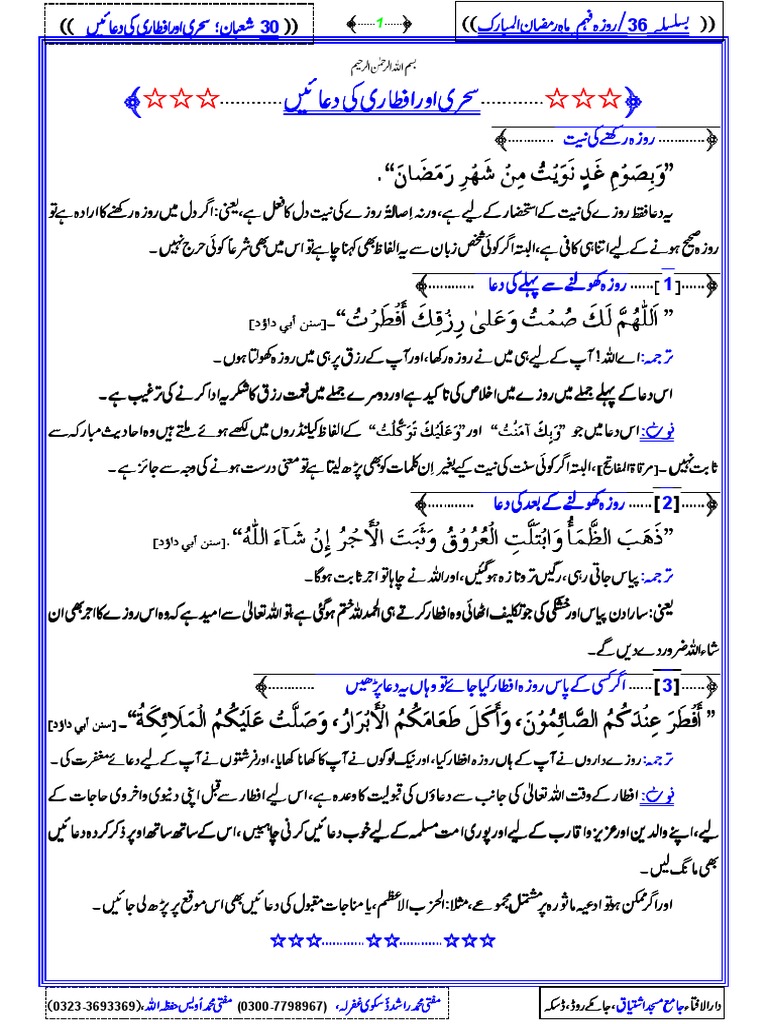 (( بسلسلہ 36/ روزہ فہم ماہ رمضان المبارک ))
1
(( 30 شعبان؛ سحری اور افطاری کی دعائیں ))
بسم اللہ الرحمٰن الرحیم
☆☆☆............سحری اور افطاری کی دعائیں............☆☆☆
............ روزہ رکھنے کی نیت ............
”وَبِصَوْمِ غَدٍ نَوَيْتُ مِنْ شَهْرِ رَمَضَانَ“.
یہ دعا فقط روزے کی نیت کے استحضار کے لیے ہے، ورنہ اِصالۃً روزے کی نیت دل کا فعل ہے، یعنی: اگر دل میں روزہ رکھنے کا ارادہ ہے تو
روزہ صحیح ہونے کے لیے اتنا ہی کافی ہے، البتہ اگر کوئی شخص زبان سے یہ الفاظ بھی کہنا چاہے تو اس میں بھی شرعاً کوئی حرج نہیں۔
......[1]...... روزہ کھولنے سے پہلے کی دعا ............
”اَللّٰهُمَّ لَكَ صُمْتُ وَعَلىٰ رِزْقِكَ أَفْطَرْتُ“۔[سنن أبي داؤد]
ترجمہ: اے اللہ! آپ کے لیے ہی میں نے روزہ رکھا، اور آپ کے رزق پر ہی میں روزہ کھولتا ہوں۔
اس دعا کے پہلے جملے میں روزے میں اخلاص کی تاکید ہے اور دوسرے جملے میں نعمت رزق کا شکریہ ادا کرنے کی ترغیب ہے۔
نوٹ: اس دعا میں جو ”وَبِكَ آمَنْتُ“ اور ”وَعَلَيْكَ تَوَكَّلْتُ“ کے الفاظ کیلنڈروں میں لکھے ہوئے ملتے ہیں وہ احادیث مبارکہ سے
ثابت نہیں۔[مرقاة المفاتح]، البتہ اگر کوئی سنت کی نیت کے بغیر اِن کلمات کو بھی پڑھ لیتا ہے تو معنی درست ہونے کی وجہ سے جائز ہے۔
......[2]...... روزہ کھولنے کے بعد کی دعا ............
”ذَهَبَ الظَّمَأُ وَابْتَلَّتِ الْعُرُوْقُ وَثَبَتَ الْأَجْرُ إِنْ شَآءَ اللّٰهُ“.[سنن أبي داؤد]
ترجمہ: پیاس جاتی رہی، رگیں تر و تازہ ہو گئیں، اور اللہ نے چاہا تو اجر ثابت ہوگا۔
یعنی: سارا دن پیاس اور خشکی کی جو تکلیف اٹھائی وہ افطار کرتے ہی الحمد للہ ختم ہو گئی ہے، تو اللہ تعالیٰ سے امید ہے کہ وہ اس روزے کا اجر بھی ان
شاء اللہ ضرور دے دیں گے۔
......[3]...... اگر کسی کے پاس روزہ افطار کیا جائے تو وہاں یہ دعا پڑھیں ............
”أَفْطَرَ عِنْدَكُمُ الصَّائِمُوْنَ، وَأَكَلَ طَعَامَكُمُ الْأَبْرَارُ، وَصَلَّتْ عَلَيْكُمُ الْمَلَائِكَةُ“۔[سنن أبي داؤد]
ترجمہ: روزے داروں نے آپ کے ہاں روزہ افطار کیا، اور نیک لوگوں نے آپ کا کھانا کھایا، اور فرشتوں نے آپ کے لیے دعائے مغفرت کی۔
نوٹ: افطار کے وقت اللہ تعالیٰ کی جانب سے دعاؤں کی قبولیت کا وعدہ ہے، اس لیے افطار سے قبل اپنی دنیوی و اخروی حاجات کے
لیے، اپنے والدین اور عزیز و اقارب کے لیے اور پوری امت مسلمہ کے لیے خوب دعائیں کرنی چاہییں، اس کے ساتھ ساتھ اوپر ذکر کردہ دعائیں
بھی مانگ لیں۔
اور اگر ممکن ہو تو ادعیہ ماثورہ پر مشتمل مجموعے، مثلا: الحزب الاعظم، یا مناجات مقبول کی دعائیں بھی اس موقع پر پڑھ لی جائیں۔
☆☆☆............☆☆............☆☆☆
دار الافتاء جامع مسجد اشتیاق، جامکے روڈ، ڈسکہ
مفتی محمد راشد ڈسکوی غفرلہ، (0300-7798967) مفتی محمد اُویس حفظہ اللہ، (0323-3693369)